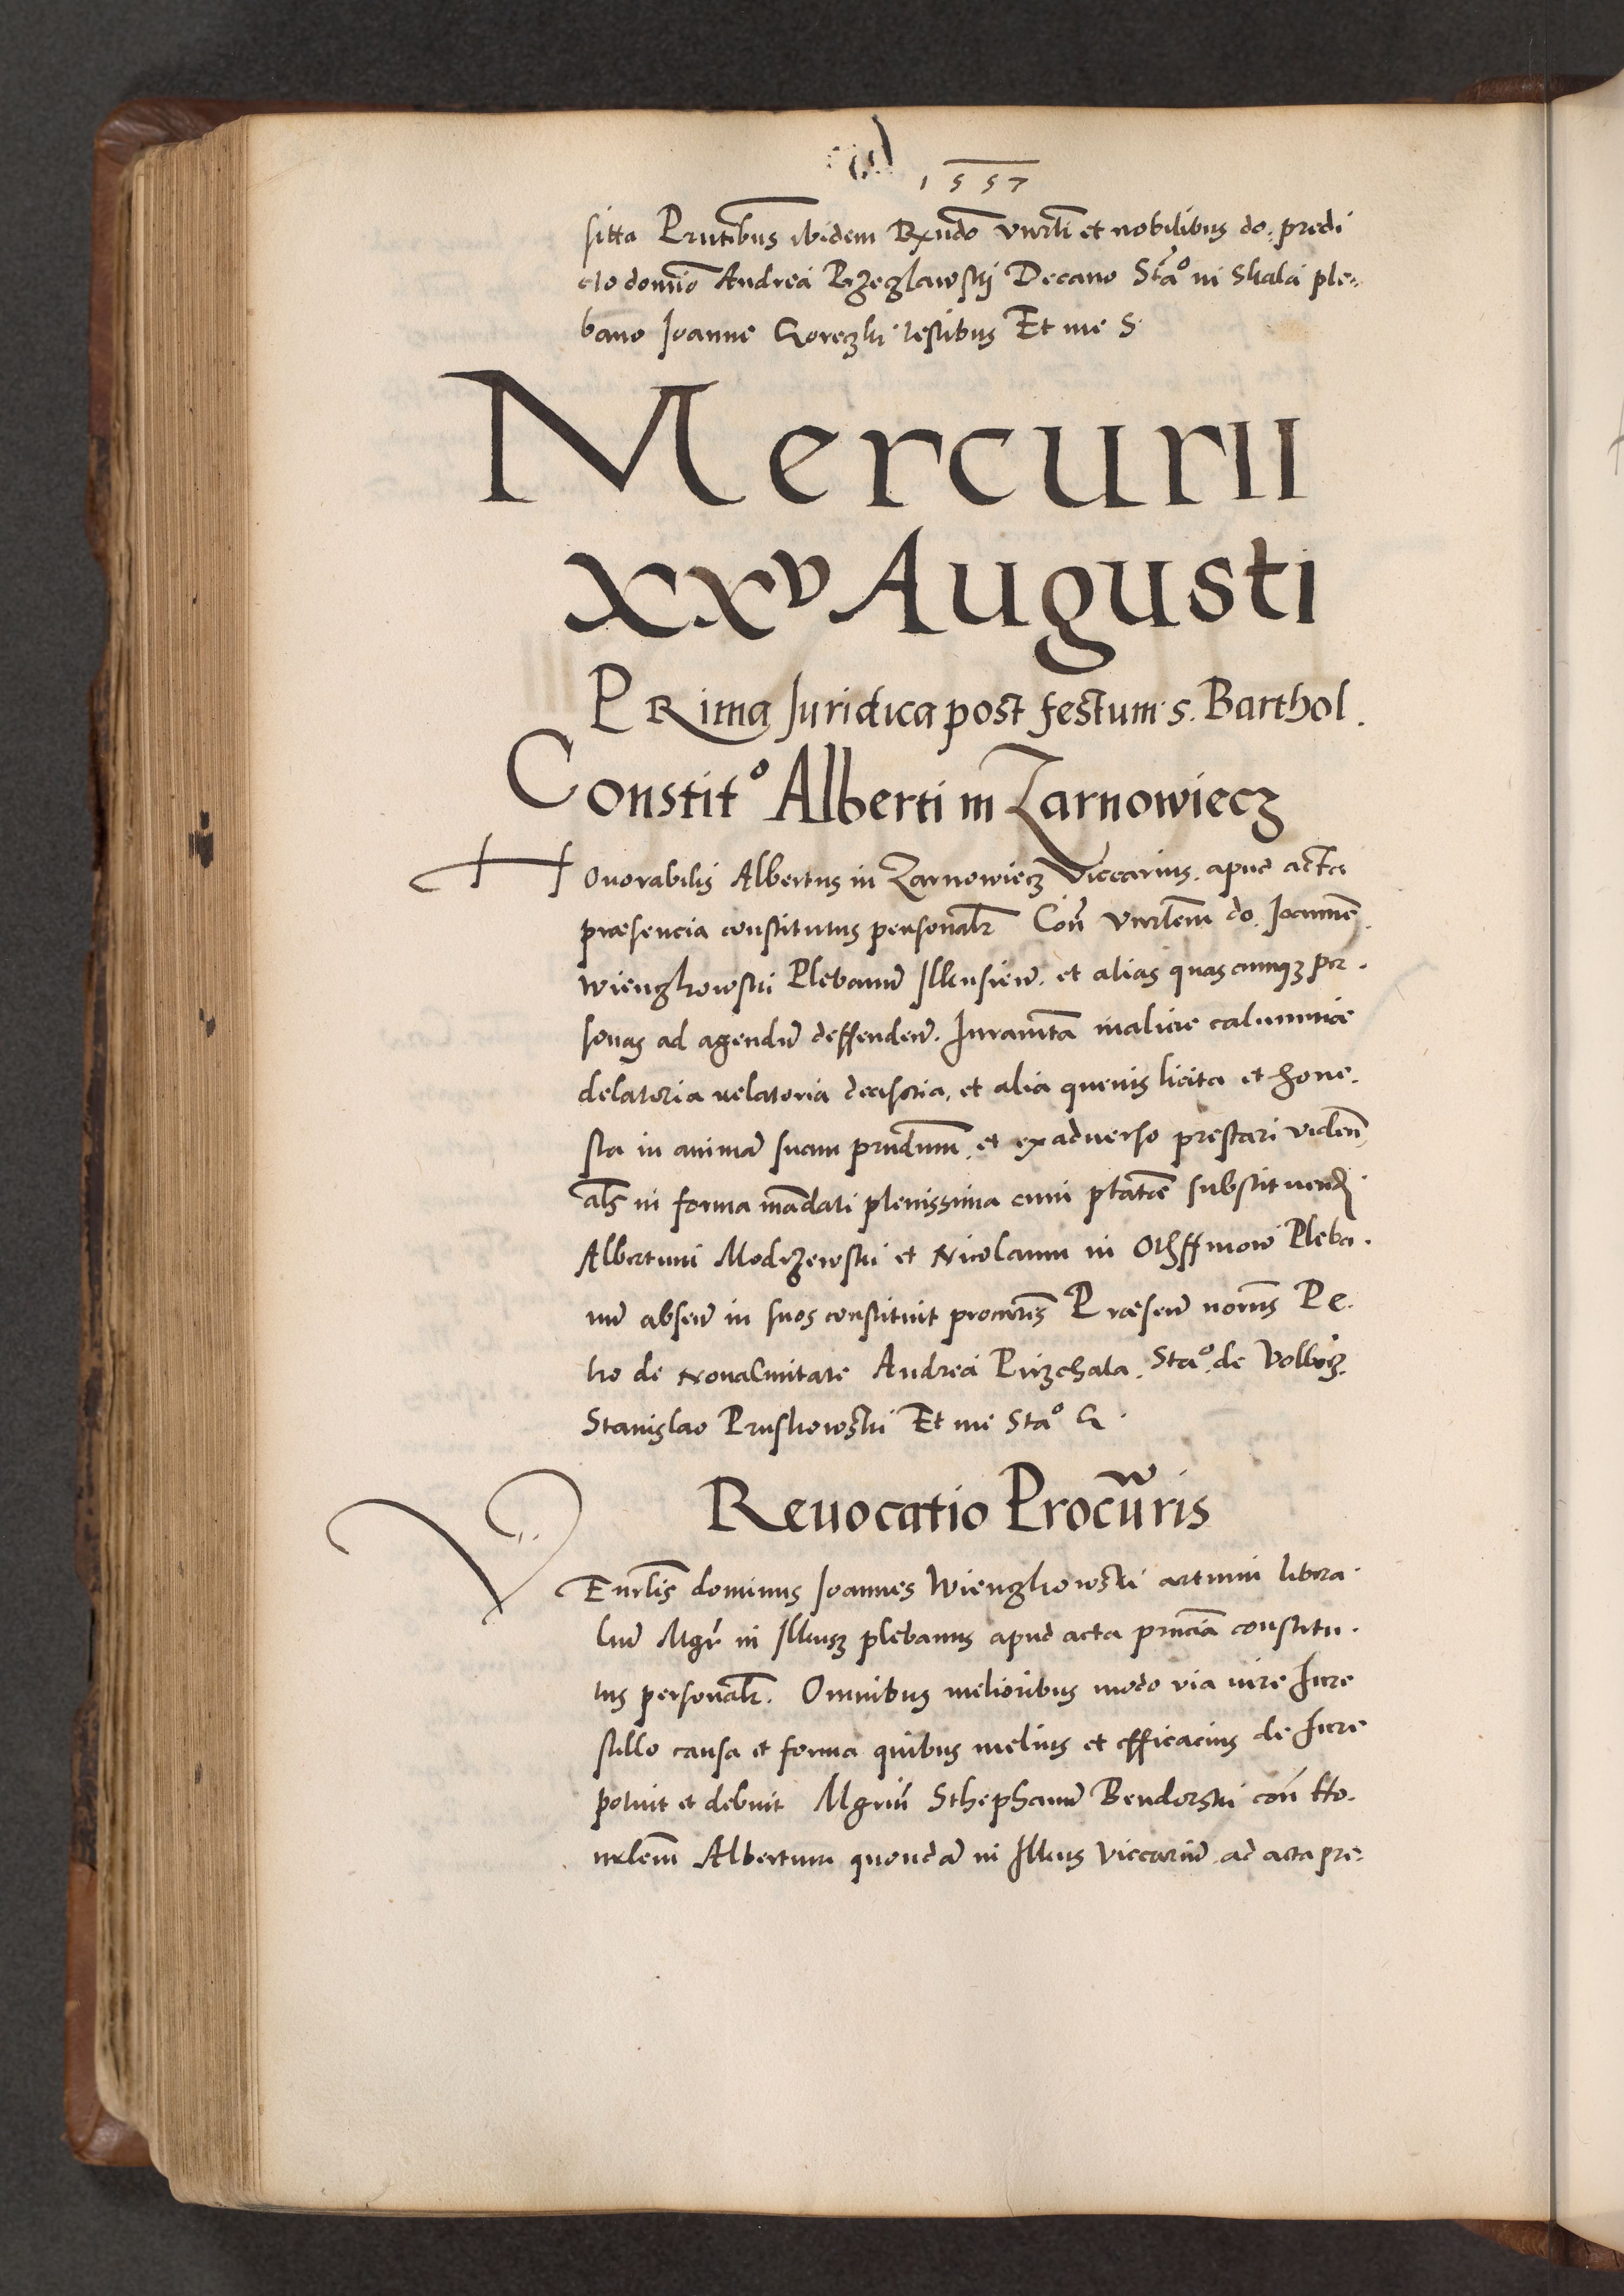 1557
sitta Prntibus ibidem Rxndo Vnrli et nobilibus do. predi
cto domino Andrea Przeglawskj Decano Sta° in Skala ple-
bano Joanne Goreczki testibus Et me S
Mercurii
xxv Augusti
PRima Juridica post festum s. Barthol.
Constit° Alberti in Zarnowiecz
Honorabilis Albertus in Zarnowiecz Viccarius. apud acta
præsencia constitutus personalr Con Vnrlem do. Joanne.
Wienghowski Plebanum Ilkusien. et alias quascumqz per.
sonas ad agendum deffenden. Iuramta maliciæ calumniæ
delatoria relatoria decisoria, et alia quevis licita et hone.
sta in animam suam prndum. et ex adverso prestari viden
als in forma mandati plenissima cum ptate substituend.
Albertum Modrzewski et Nicolaum in Othffinow Pleba.
num absen in suos constituit procures Præsen nonis Pe.
tro de Novacivitate Andrea Pirzchala. Sta°. de Volborz.
Stanislao Pruskowski Et me Sta° G.
Reuocatio Procuris
VEnrlis dominus Joannes Wienghowski artium libera.
lium Mgr in Ilkusz plebanus apud acta prnciā constitu.
tus personalr. Omnibus melioribus modo via iure Iure
stillo causa et forma quibus melius et efficacius de Iure
potuit et debuit Mgrum Sthephanum Bendorski con Ho.
nrlem Albertum quondam in Ilkus Viccarium ad acta pre-